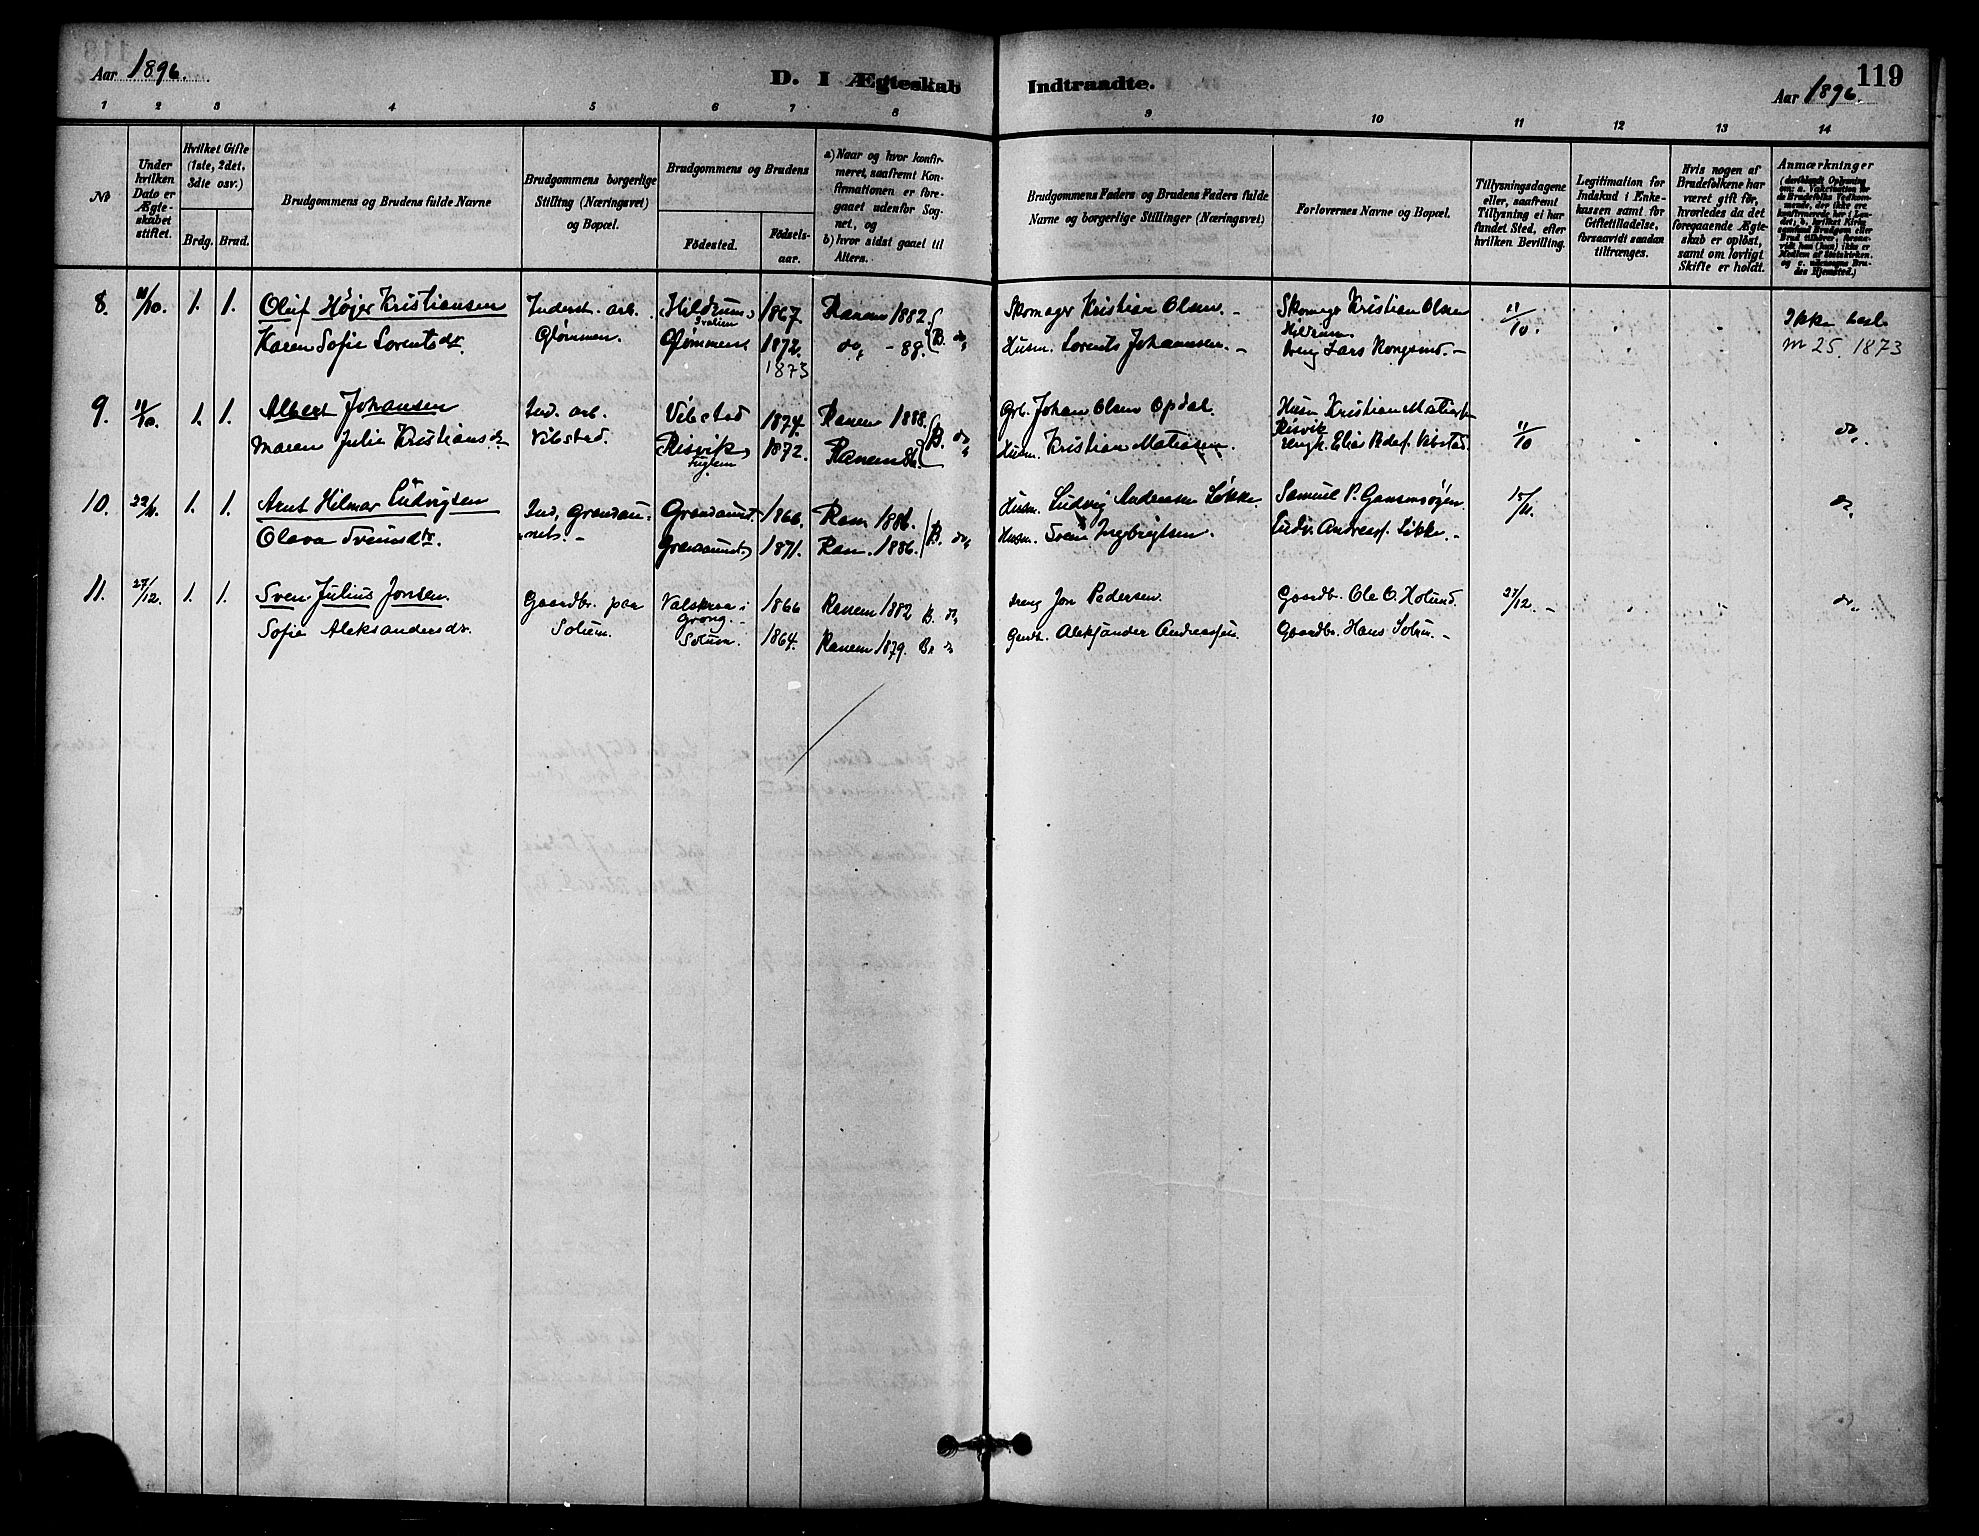 Aar 1896.
D. I Ægteskab Indtraadte.
119
Aar 1896
1 2 3 4 5 6 7 8 9 10 11 12 13 14
No
Under hvilken Dato er Ægteskabet stiftet.
Hvilket Gifte (1ste, 2det, 3die osv.)
Brdg. Brud.
Brudgommens og Brudens fulde Navne
Brudgommens borgerlige Stilling (Næringsvei) og Bopæl.
Brudgommens og Brudens
Fødested.
Fødselsaar.
a) Naar og hvor konfirmeret, saafremt Konfirmationen er foregaaet udenfor Sognet, og
b) hvor sidst gaaet til Alters.
Brudgommens Faders og Brudens Faders fulde Navne og borgerlige Stillinger (Næringsvei)
Forlovernes Navne og Bopæl.
Tillysningsdagene eller, saafremt Tillysning ei har fundet Sted, efter hvilken Bevilling.
Legitimation for Indskud i Enkekassen samt for Giftetilladelse, forsaavidt saadan tiltrænges.
Hvis nogen af Brudefolkene har været gift før, hvorledes da det foregaaende Ægteskab er opløst, samt om lovligt Skifte er holdt.
Anmærkninger
8. 1. 1. Oluf Højer Kristiansen Inderst. arb. Hildrum 1867 Ranem 1882 Skomager Kristian Olsen. Skomager Kristian Olsen 11/10 Ikke besl.
Hildrum
Karen Sofie Lorentsdr Glømmen. Glømmen 1872. do, - 88. B. do, Husm. Lorents Johannsen. - Lars Kongsmd. - m 25. 1873
1873
9. 11/10. 1. 1. Albert Johansen Ind. arb. Vibstad 1874. Ranem 1888. Grb. Johan Olsen Opdal. Husm Kristian Matias
Maren Julie Kristiansdr Vibstad. Risvik, 1872. Ranem 86. B. do, Husm. Kristian Matisen. Risvik 11/10 do,
Fuglem Elias Vibstad
10. 22/11. 1. 1. Arnt Hilmar Ludvigsen Ind. Grandau- Grandaunet 1866. Ranm 1886. Husm. Ludvig Andersen Løkke. Samuel P. 15/11. do,
Olava Svensdtr. net. - Grandaunet, 1871. Ran. 1886. B. do, Husm. Sven Ingbrigtsen. Ludv. Løkke. -
11. 27/12. 1. 1. Sven Julius Jonsen. Gaardbr. paa Valskraa i 1866 Ranem 1882 B. do, Jon Pedersen. Gaardbr. Ole O. 27/12. - do,
Grong. -
Sofie Aleksandersdr. Solum. Solum. 1864. Ranem 1879. B. do Gaardb. Aleksander Andreassen. Gaardbr. Hans Solum. -